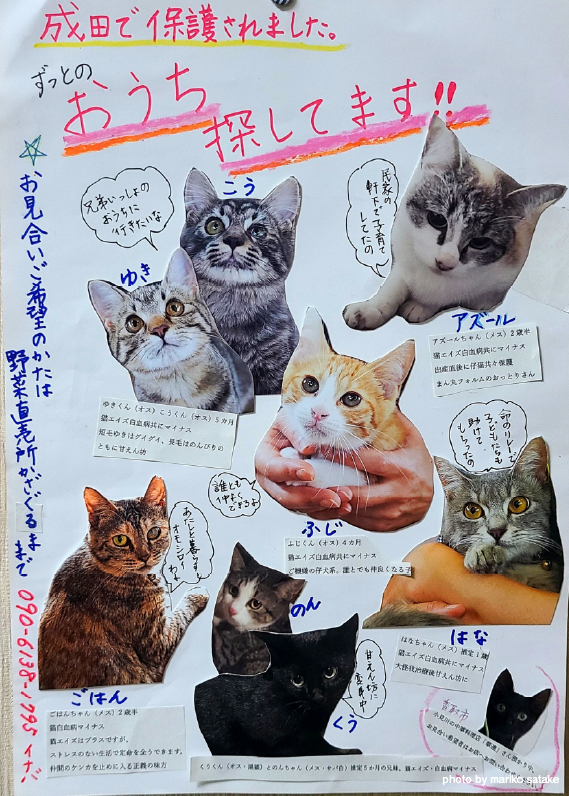 成田で保護されました。
ずっとの
おうち
探してます!!
☆お見合いご希望のかたは
野菜直売所かざぐるままで
090-6138-1795 イナバ
こう
兄弟いっしょの
おうちに
行きたいな
ゆき
ゆきくん(オス)こうくん(オス)5カ月
猫エイズ白血病共にマイナス
短毛ゆきはグイグイ、長毛はのんびりの
ともに甘えん坊
民家の
軒下で子育て
してたの
アズール
アズールちゃん(メス)2歳半
猫エイズ白血病共にマイナス
出産直後に仔猫共々保護
まん丸フォルムのおっとりさん
誰とも
仲よく
できるよ
ふじ
ふじくん(オス)4カ月
猫エイズ白血病共にマイナス
ご機嫌の仔犬系、誰とでも仲良くなる子
命のリレーで
子どもたちも
助けて
もらったの
はな
はなちゃん(メス)推定1歳
猫エイズ白血病共にマイナス
大怪我治療後甘えん坊に
あたしと暮らすと
オモシロイ
わよ
ごはん
ごはんちゃん(メス)2歳半
猫白血病マイナス
猫エイズはプラスですが、
ストレスのない生活で定命を全うできます。
仲間のケンカを止めに入る正義の味方
のん
甘えん坊に
変身中
くう
くうくん(オス・黒猫)とのんちゃん(メス・サバ白)推定5か月の兄妹。猫エイズ・白血病マイナス
小見川の中華料理店
お見合い希望者はお店へお問い合わせ
photo by mariko satake